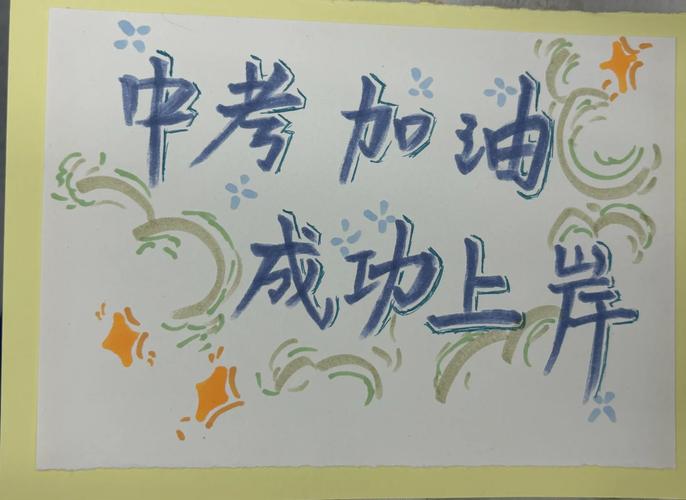 中考加油
成功上岸